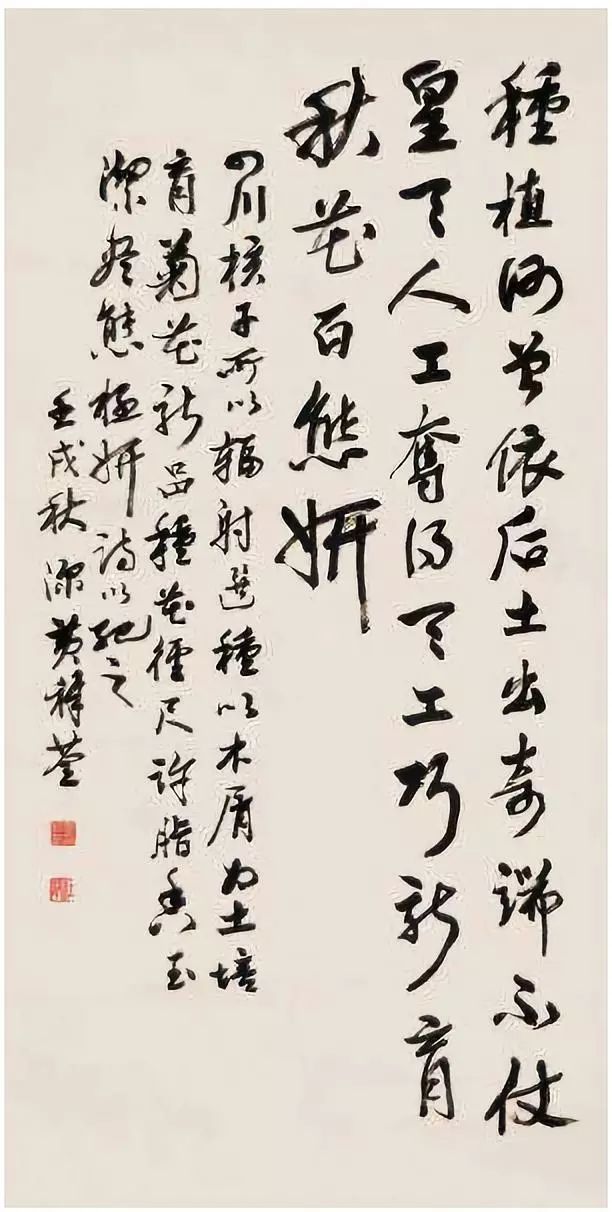 種植何曾依后土出奇端不仗
皇天人工奪得天工巧新育
秋花百態妍
四川核子所以輻射選種以木屑為土培
育菊花新品種花徑尺許脂香玉
潔姿態極妍詩以記之
壬戌秋深黃稺荃